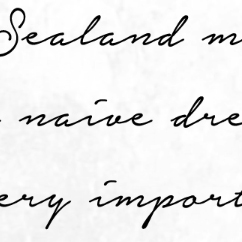 Sealand m
naive dre
ery import